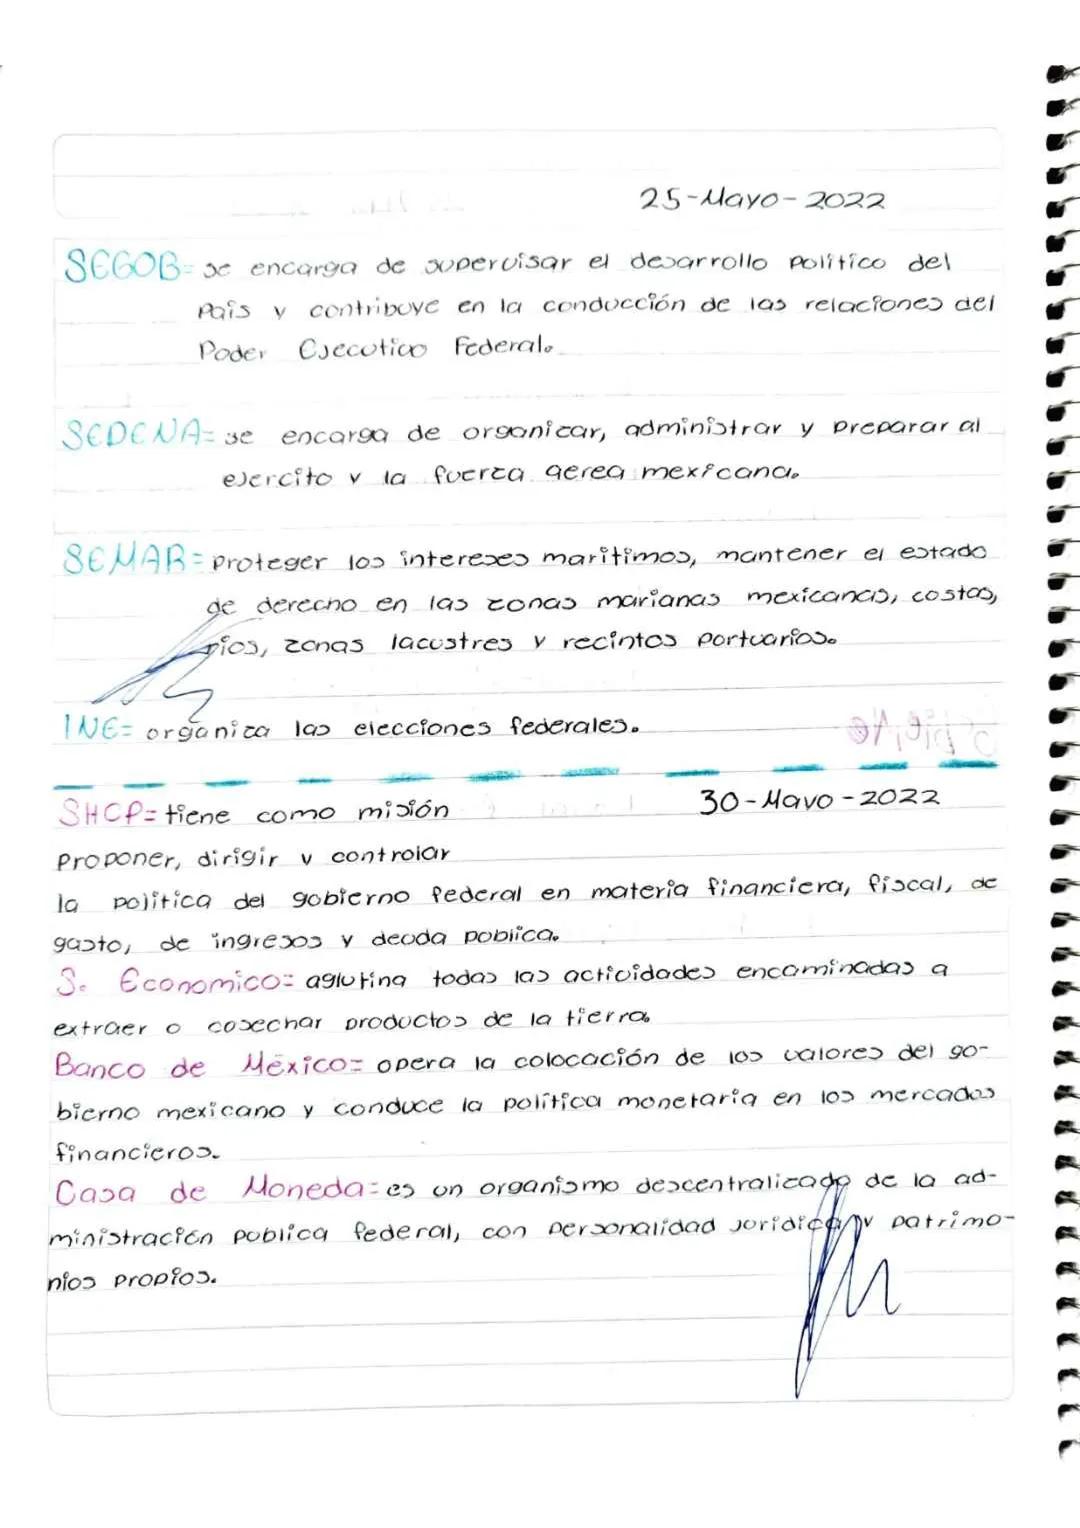 25-Mayo-2022
SEGOB= se encarga de supervisar el desarrollo político del
País y contribuye en la conducción de las relaciones del
Poder Ejecutivo Federal.
SEDENA= se encarga de organizar, administrar y preparar al
ejercito y la fuerza aerea mexicana.
SEMAR= Proteger los intereses marítimos, mantener el estado
de derecho en las zonas marianas mexicanas, costas,
ríos, zonas lacustres y recintos portuarios.
INE= organiza las elecciones federales.
SHCP= tiene como misión
30-Mayo-2022
Proponer, dirigir y controlar
la política del gobierno federal en materia financiera, fiscal, de
gasto, de ingresos y deuda poblica.
S. Economico= aglutina todas las actividades encaminadas a
extraer o cosechar productos de la tierra.
Banco de México= opera la colocación de los valores del go-
bierno mexicano y conduce la política monetaria en los mercados
financieros.
Casa de Moneda= es un organismo descentralizado de la ad-
ministración publica federal, con personalidad juridica y patrimo-
nios propios.